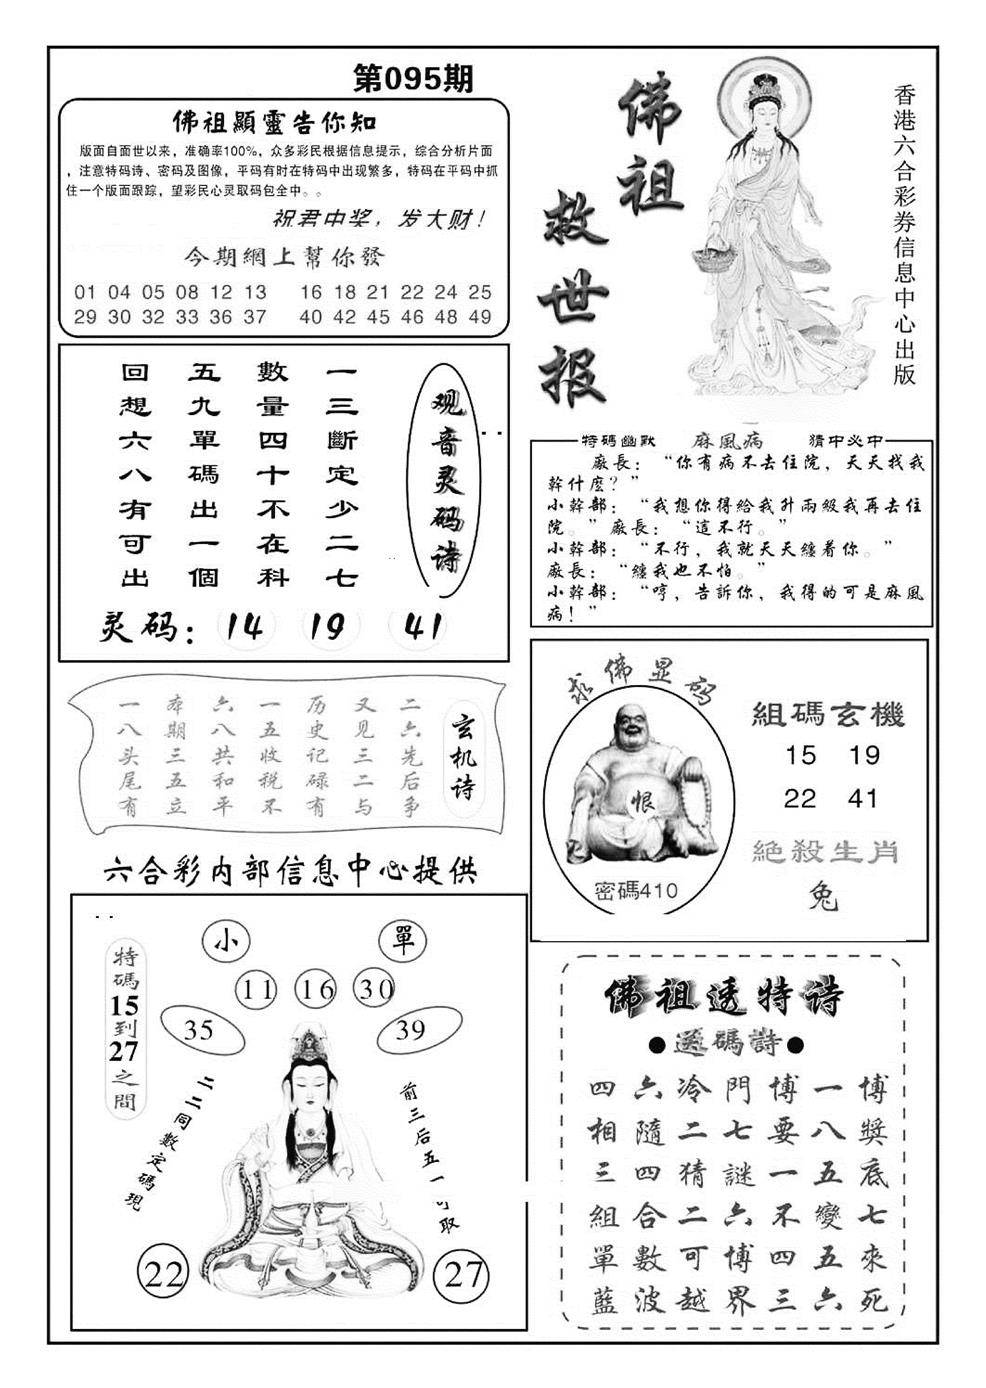 第095期
佛祖顯靈告你知
版面自面世以来，准确率100%，众多彩民根据信息提示，综合分析片面
，注意特码诗、密码及图像，平码有时在特码中出现繁多，特码在平码中抓
住一个版面跟踪，望彩民心灵取码包全中。。
祝君中奖，发大财！
今期網上幫你發
01 04 05 08 12 13 16 18 21 22 24 25
29 30 32 33 36 37 40 42 45 46 48 49
佛祖
救世报
香港六合彩券信息中心出版
观音灵码诗
一三斷定少二七
數量四十不在科
五九單碼出一個
回想六八有可出
灵码：14 19 41
特碼幽默 麻風病 猜中必中
廠長：“你有病不去住院，天天找我
幹什麽？”
小幹部：“我想你得給我升兩級我再去住
院。”廠長：“這不行。”
小幹部：“不行，我就天天纏着你。”
廠長：“纏我也不怕。”
小幹部：“哼，告訴你，我得的可是麻風
病！”
玄机诗
二六先后争
又见三二与
历史记碌有
一五收税不
六八共和平
本期三五立
一八头尾有
六合彩内部信息中心提供
求佛显码
恨
密碼410
組碼玄機
15 19
22 41
絕殺生肖
兔
小 單
11 16 30
35 39
特碼15到27之間
二二同數定碼現
前三后五一可取
22 27
佛祖透特诗
●透碼詩●
博獎底七來死
一八五變五六
博要一不四三
門七謎六博界
冷二猜二可越
六隨四合數波
四相三組單藍